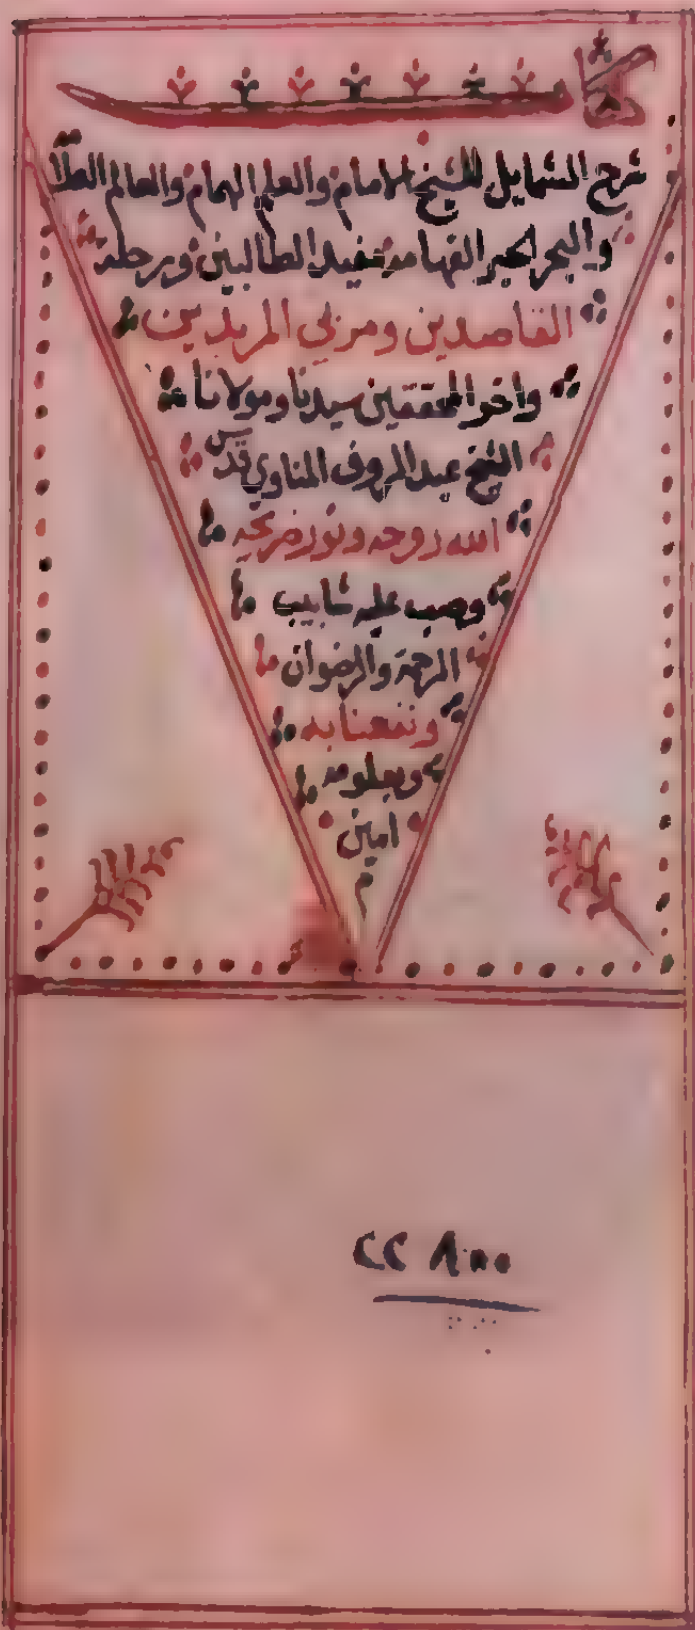 شرح الشمايل للشيخ الامام والعلم الهمام والعالم العلا
والبحر الحبر الفهامه مفيد الطالبين ورحلة
القاصدين ومربي المريدين
واخر المحققين سيدنا ومولانا
الشيخ عبد الروف المناوي قدس
الله روحه ونور ضريحه
وصب عليه شابيب
الرحمة والرضوان
ونفعنا به
وبعلومه
امين
م